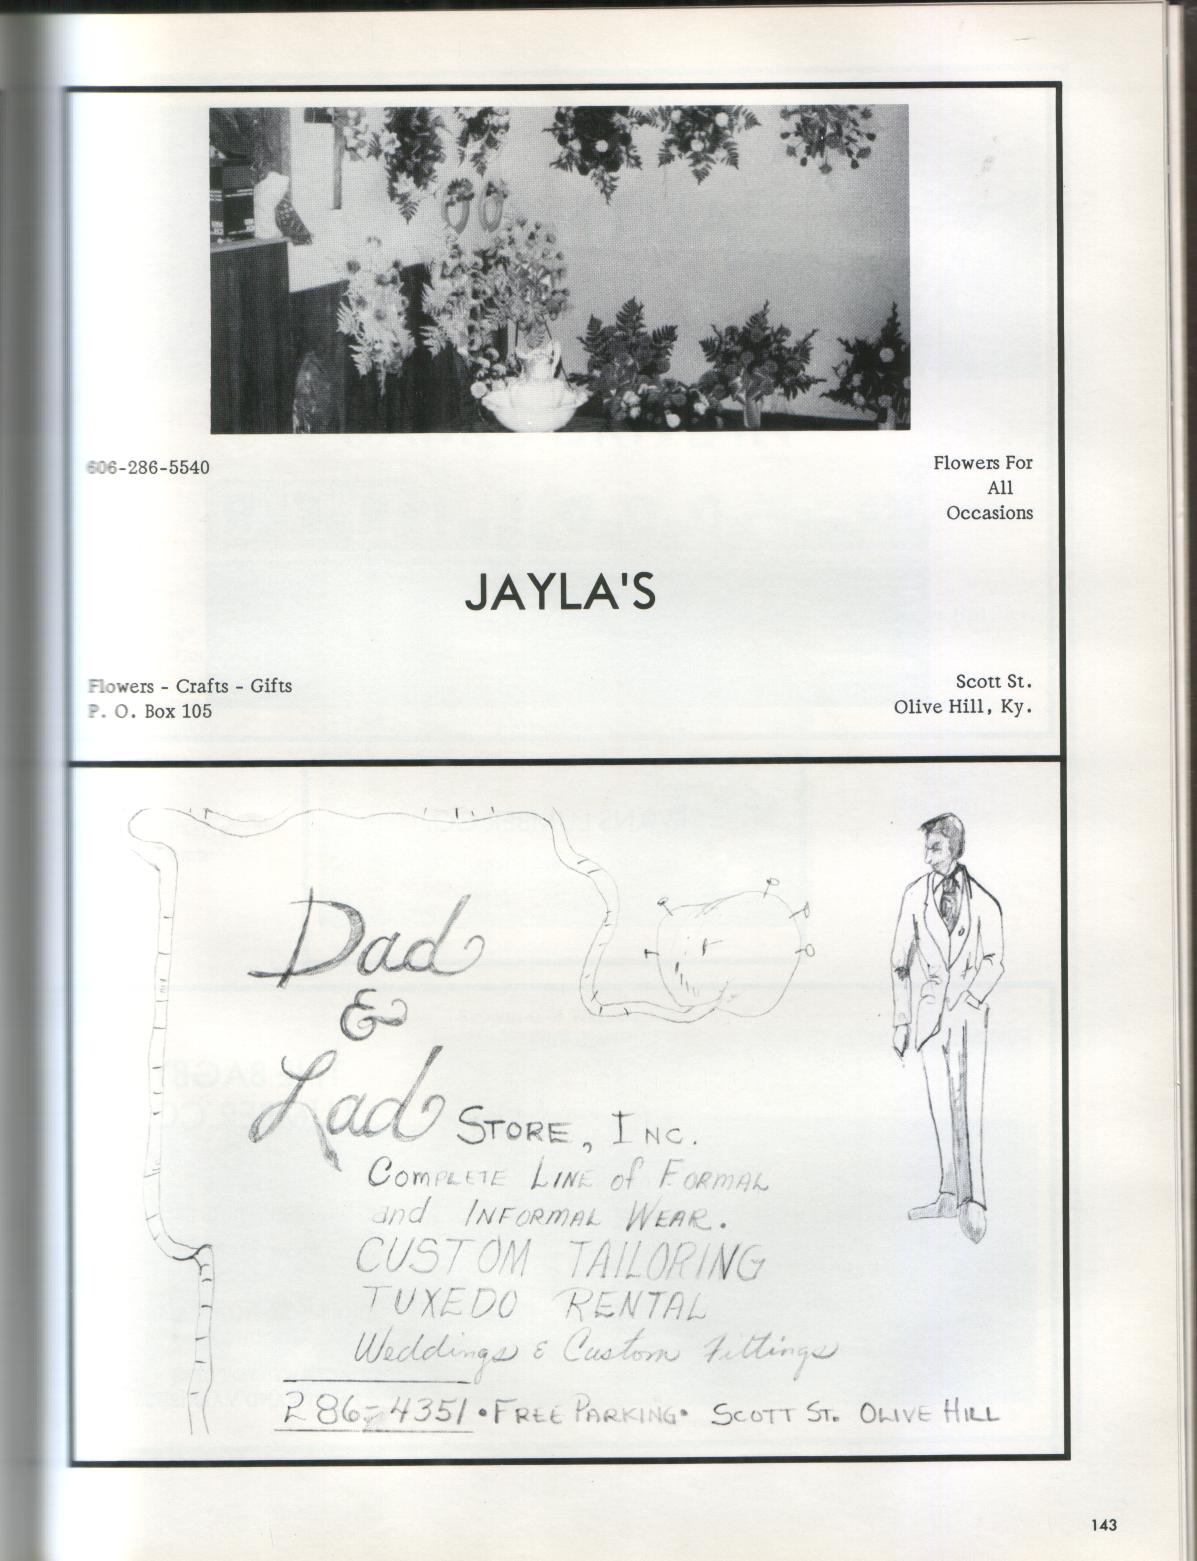 606-286-5540
Flowers For
All
Occasions
JAYLA'S
Flowers - Crafts - Gifts
P. O. Box 105
Scott St.
Olive Hill, Ky.
Dad
&
Lad STORE, INC.
COMPLETE LINE of FORMAL
and INFORMAL WEAR.
CUSTOM TAILORING
TUXEDO RENTAL
Weddings & Custom Fittings
286-4351 • FREE PARKING • SCOTT ST. OLIVE HILL
143